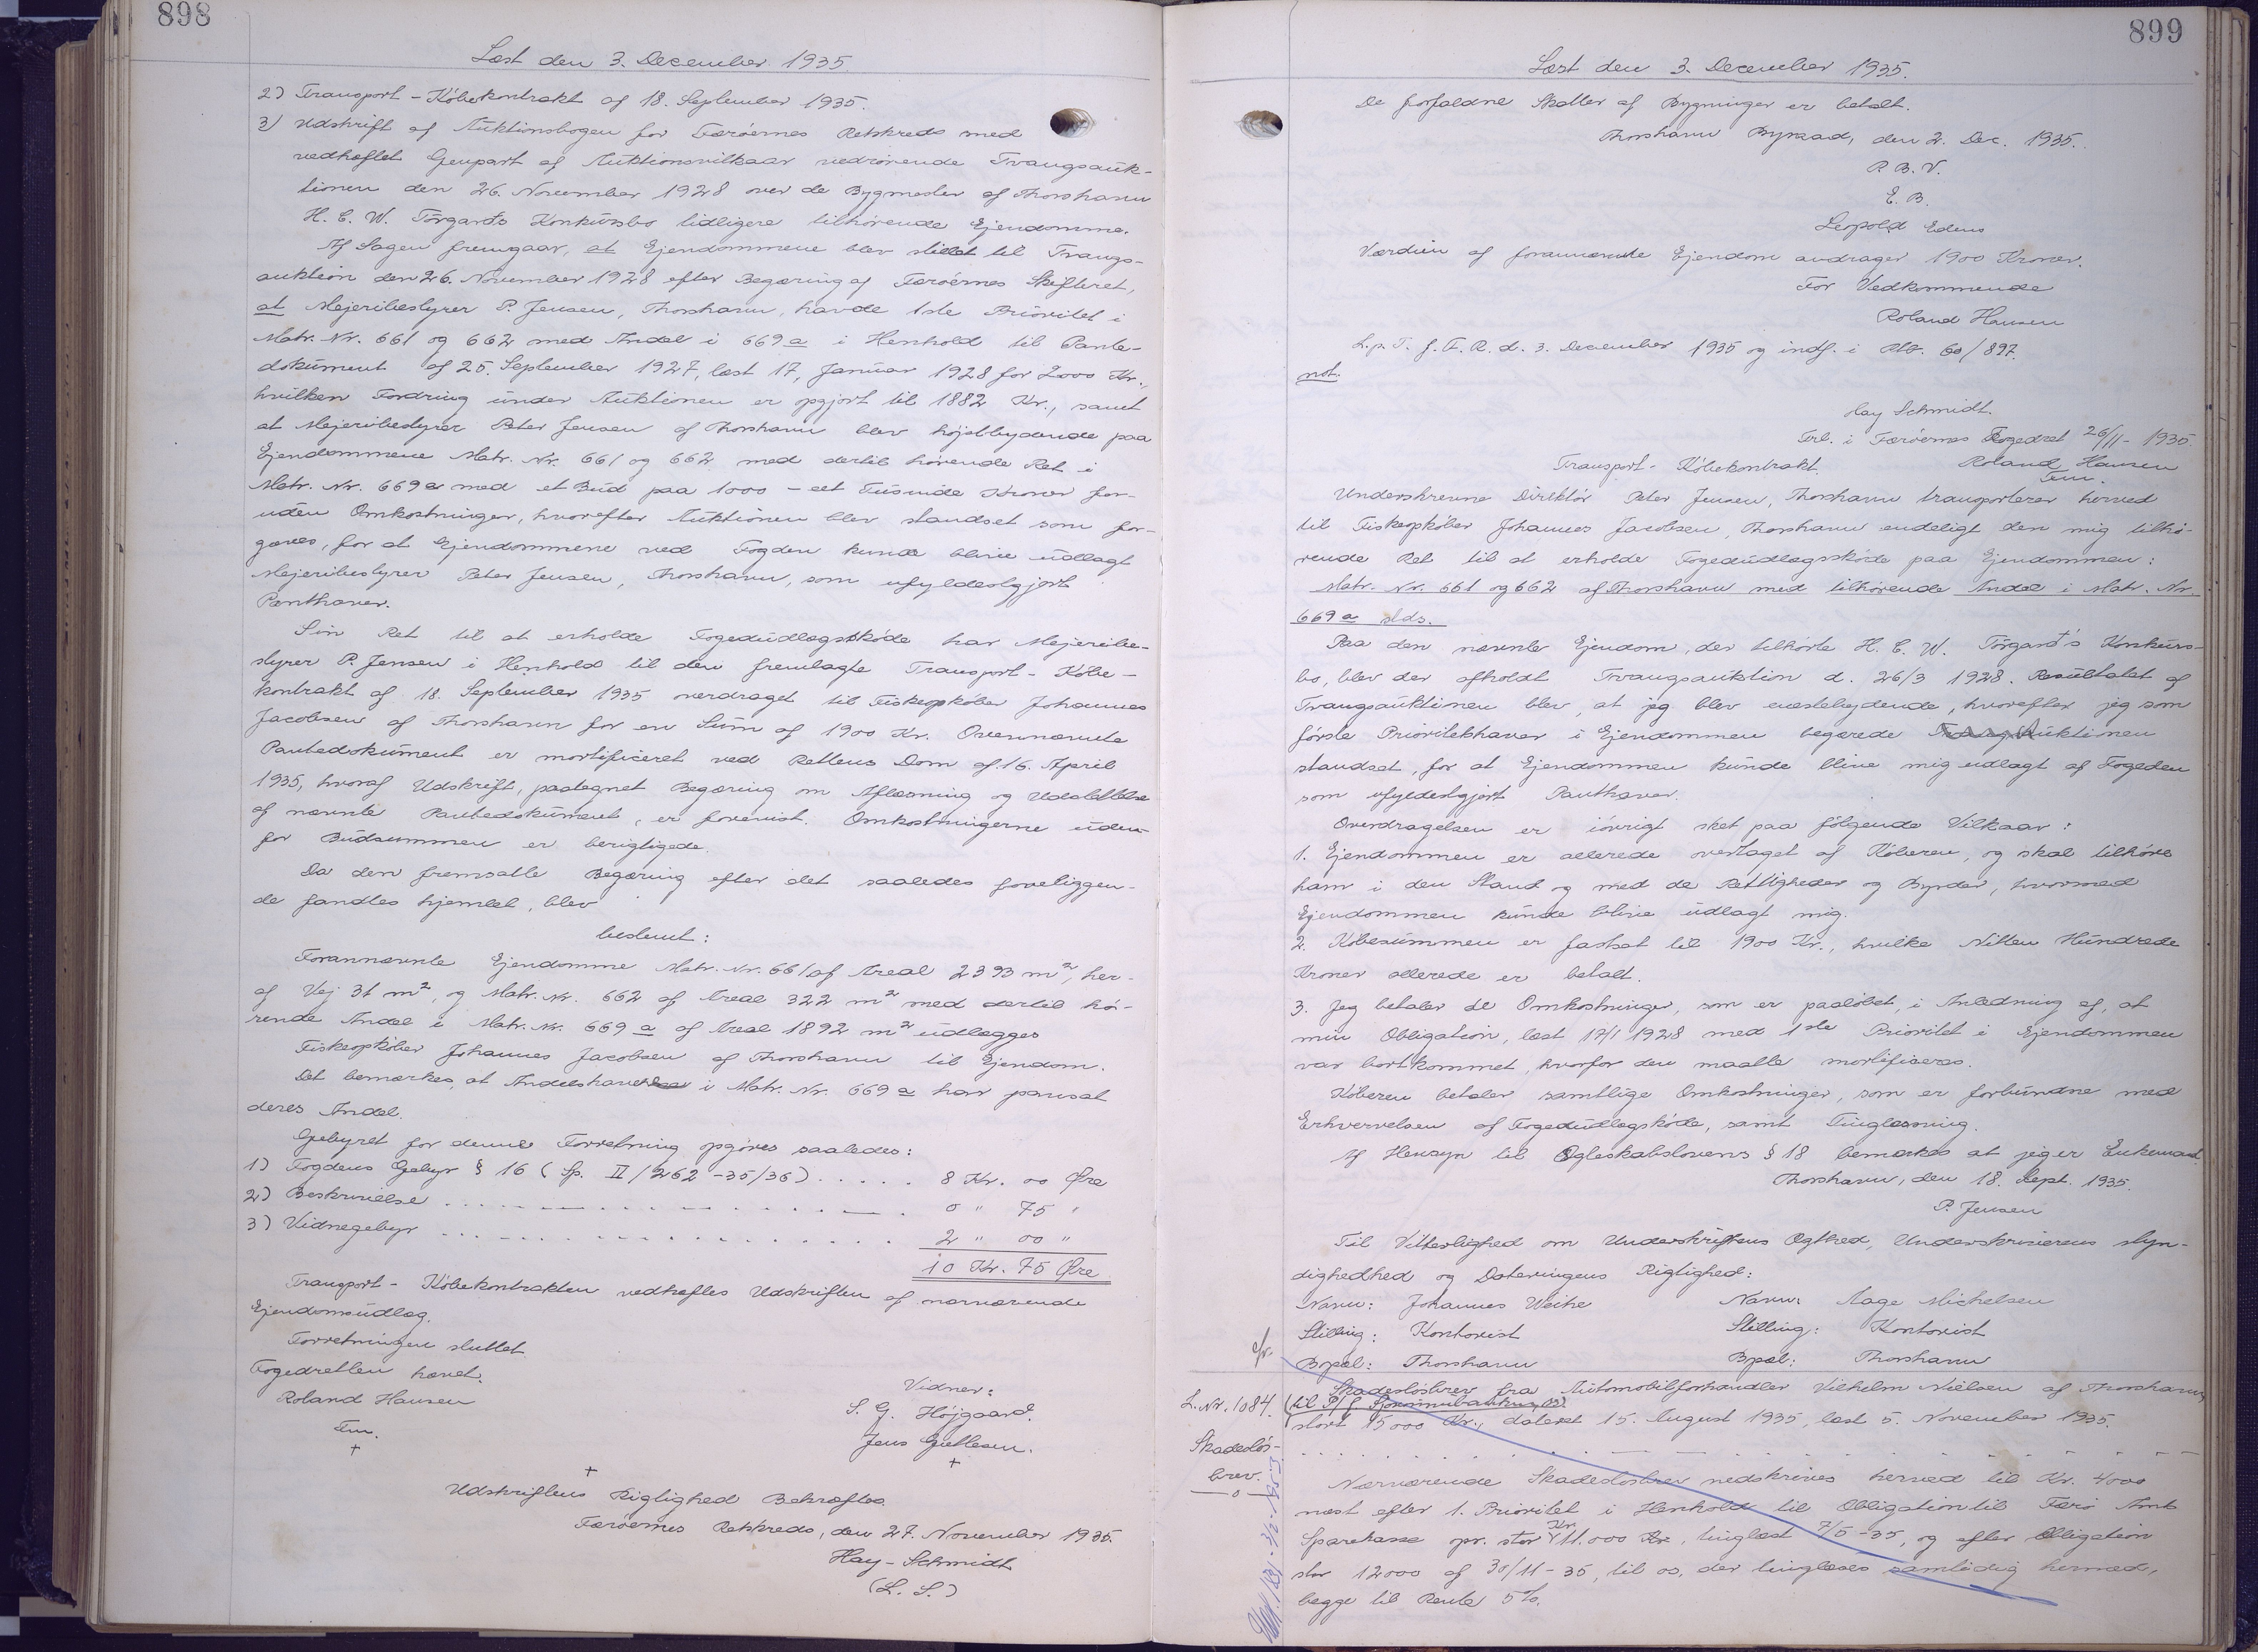 898
Læst den 3. December 1935
2) Transport-Købekontrakt af 18. September 1935.
3) Udskrift af Auktionsbogen for Færøernes Retskreds med
vedhæftet Genpart af Auktionsvilkaar vedrørende Tvangsauk-
tionen den 26. November 1928 over de Bygmester af Thorshavn
H. C. W. Törgarð's Konkursbo tidligere tilhørende Ejendomme.
Af Sagen fremgaar, at Ejendommene blev stillet til Tvangs-
auktion den 26. November 1928 efter Begæring af Færøernes Skifteret,
at Mejeribestyrer P. Jensen, Thorshavn, havde 1ste Prioritet i
Matr. Nr. 661 og 662 med Andel i 669 a i Henhold til Pante-
dokument af 25. September 1927, læst 17. Januar 1928 for 2000 Kr.,
hvilken Fordring under Auktionen er opgjort til 1882 Kr., samt
at Mejeribestyrer Peter Jensen af Thorshavn blev højstbydende paa
Ejendommene Matr. Nr. 661 og 662 med dertil hørende Ret i
Matr. Nr. 669 a med et Bud paa 1000 - eet Tusinde Kroner for-
uden Omkostninger, hvorefter Auktionen blev standset som for-
gæves, for at Ejendommene ved Fogden kunde blive udlagt
Mejeribestyrer Peter Jensen, Thorshavn, som ufyldestgjort
Panthaver.
Sin Ret til at erholde Fogedudlægsskøde har Mejeribe-
styrer P. Jensen i Henhold til den fremlagte Transport-Købe-
kontrakt af 18. September 1935 overdraget til Fiskeopkøber Johannes
Jacobsen af Thorshavn for en Sum af 1900 Kr. Ovennævnte
Pantedokument er mortificeret ved Rettens Dom af 16. April
1935, hvoraf Udskrift, paategnet Begæring om Aflæsning og Udslettelse
af nævnte Pantedokument, er forevist. Omkostningerne uden-
for Budsummen er berigtigede.
Da den fremsatte Begæring efter det saaledes foreliggen-
de fandtes hjemlet, blev
bestemt:
Forannævnte Ejendomme Matr. Nr. 661 af Areal 2393 m², her-
af Vej 31 m², og Matr. Nr. 662 af Areal 322 m² med dertil hø-
rende Andel i Matr. Nr. 669 a af Areal 1892 m² udlægges
Fiskeopkøber Johannes Jacobsen af Thorshavn til Ejendom.
Det bemærkes, at Andelshaver i Matr. Nr. 669 a har pansat
deres Andel.
Gebyret for denne Forretning opgøres saaledes:
1) Fogdens Gebyr § 16 (Sp. II/262-35/36) . . . . . 8 Kr. 00 Øre
2) Beskrivelse . . . . . . . . 0 " 75 "
3) Vidnegebyr . . . . . . . . 2 " 00 "
10 Kr. 75 Øre
Transport-Købekontrakten vedhæftes Udskriften af nærværende
Ejendomsudlæg.
Forretningen sluttet.
Fogedretten hævet.
Roland Hansen
Fm.
Vidner:
S. G. Højgaard.
Jens Gullesen.
Udskriftens Rigtighed Bekræftes.
Færøernes Retskreds, den 27. November 1935.
Hay-Schmidt
(L. S.)
899
Læst den 3. December 1935.
De forfaldne Skatter af Bygninger er betalt.
Thorshavn Byraad, den 2. Dec. 1935.
P. B. V.
E. B.
Leopold Edens
Værdien af forannævnte Ejendom andrager 1900 Kroner.
For Vedkommende
Roland Hansen
L. p. T. f. F. R. d. 3. December 1935 og indf. i Rtg. 60/897.
not.
Hay Schmidt.
Frl. i Færøernes Fogedret 26/11-1935.
Roland Hansen
Fm.
Transport-Købekontrakt.
Underskrevne Direktør Peter Jensen, Thorshavn transporterer herved
til Fiskeopkøber Johannes Jacobsen, Thorshavn endeligt den mig tilhø-
rende Ret til at erholde Fogedudlægsskøde paa Ejendommen:
Matr. Nr. 661 og 662 af Thorshavn med tilhørende Andel i Matr. Nr.
669 a slds.
Paa den nævnte Ejendom, der tilhørte H. C. W. Törgarð's Konkurs-
bo, blev der afholdt Tvangsauktion d. 26/3 1928. Resultatet af
Tvangsauktionen blev, at jeg blev næstebydende, hvorefter jeg som
første Prioritetshaver i Ejendommen begærede Auktionen
standset, for at Ejendommen kunde blive mig udlagt af Fogeden
som ufyldestgjort Panthaver.
Overdragelsen er iøvrigt sket paa følgende Vilkaar:
1. Ejendommen er allerede overtaget af Køberen, og skal tilhøre
ham i den Stand og med de Rettigheder og Byrder, hvormed
Ejendommen kunde blive udlagt mig.
2. Købesummen er fastsat til 1900 Kr., hvilke Nitten Hundrede
Kroner allerede er betalt.
3. Jeg betaler de Omkostninger, som er paaløbet, i Anledning af, at
min Obligation, læst 17/1 1928 med 1ste Prioritet i Ejendommen
var bortkommet, hvorfor den maatte mortificeres.
Køberen betaler samtlige Omkostninger, som er forbundne med
Erhvervelsen af Fogedudlægsskøde, samt Tinglæsning.
Af Hensyn til Ægteskabslovens § 18 bemærkes at jeg er Enkemand.
Thorshavn, den 18. Sept. 1935.
P. Jensen
Til Vitterlighed om Underskriftens Ægthed, Underskriverens Myn-
dighedhed og Dateringens Rigtighed:
Navn: Johannes Weihe Navn: Aage Michelsen
Stilling: Kontorist Stilling: Kontorist
Bopæl: Thorshavn Bopæl: Thorshavn
L. Nr. 1084.
Skadesløs-
brev.
Skadesløsbrev fra Automobilforhandler Vilhelm Nielsen af Thorshavn,
stort 15000 Kr., dateret 15. August 1935, læst 5. November 1935.
Nærværende Skadesløsbrev nedskrives herved til Kr. 4000
næst efter 1. Prioritet i Henhold til Obligation til Færø Amts
Sparekasse opr. stor Kr. 11.000, tinglæst 7/5-35, og efter Obligation
stor 12000 af 30/11-35, til os, der tinglæses samtidig hermed,
begge til Rente 5%.